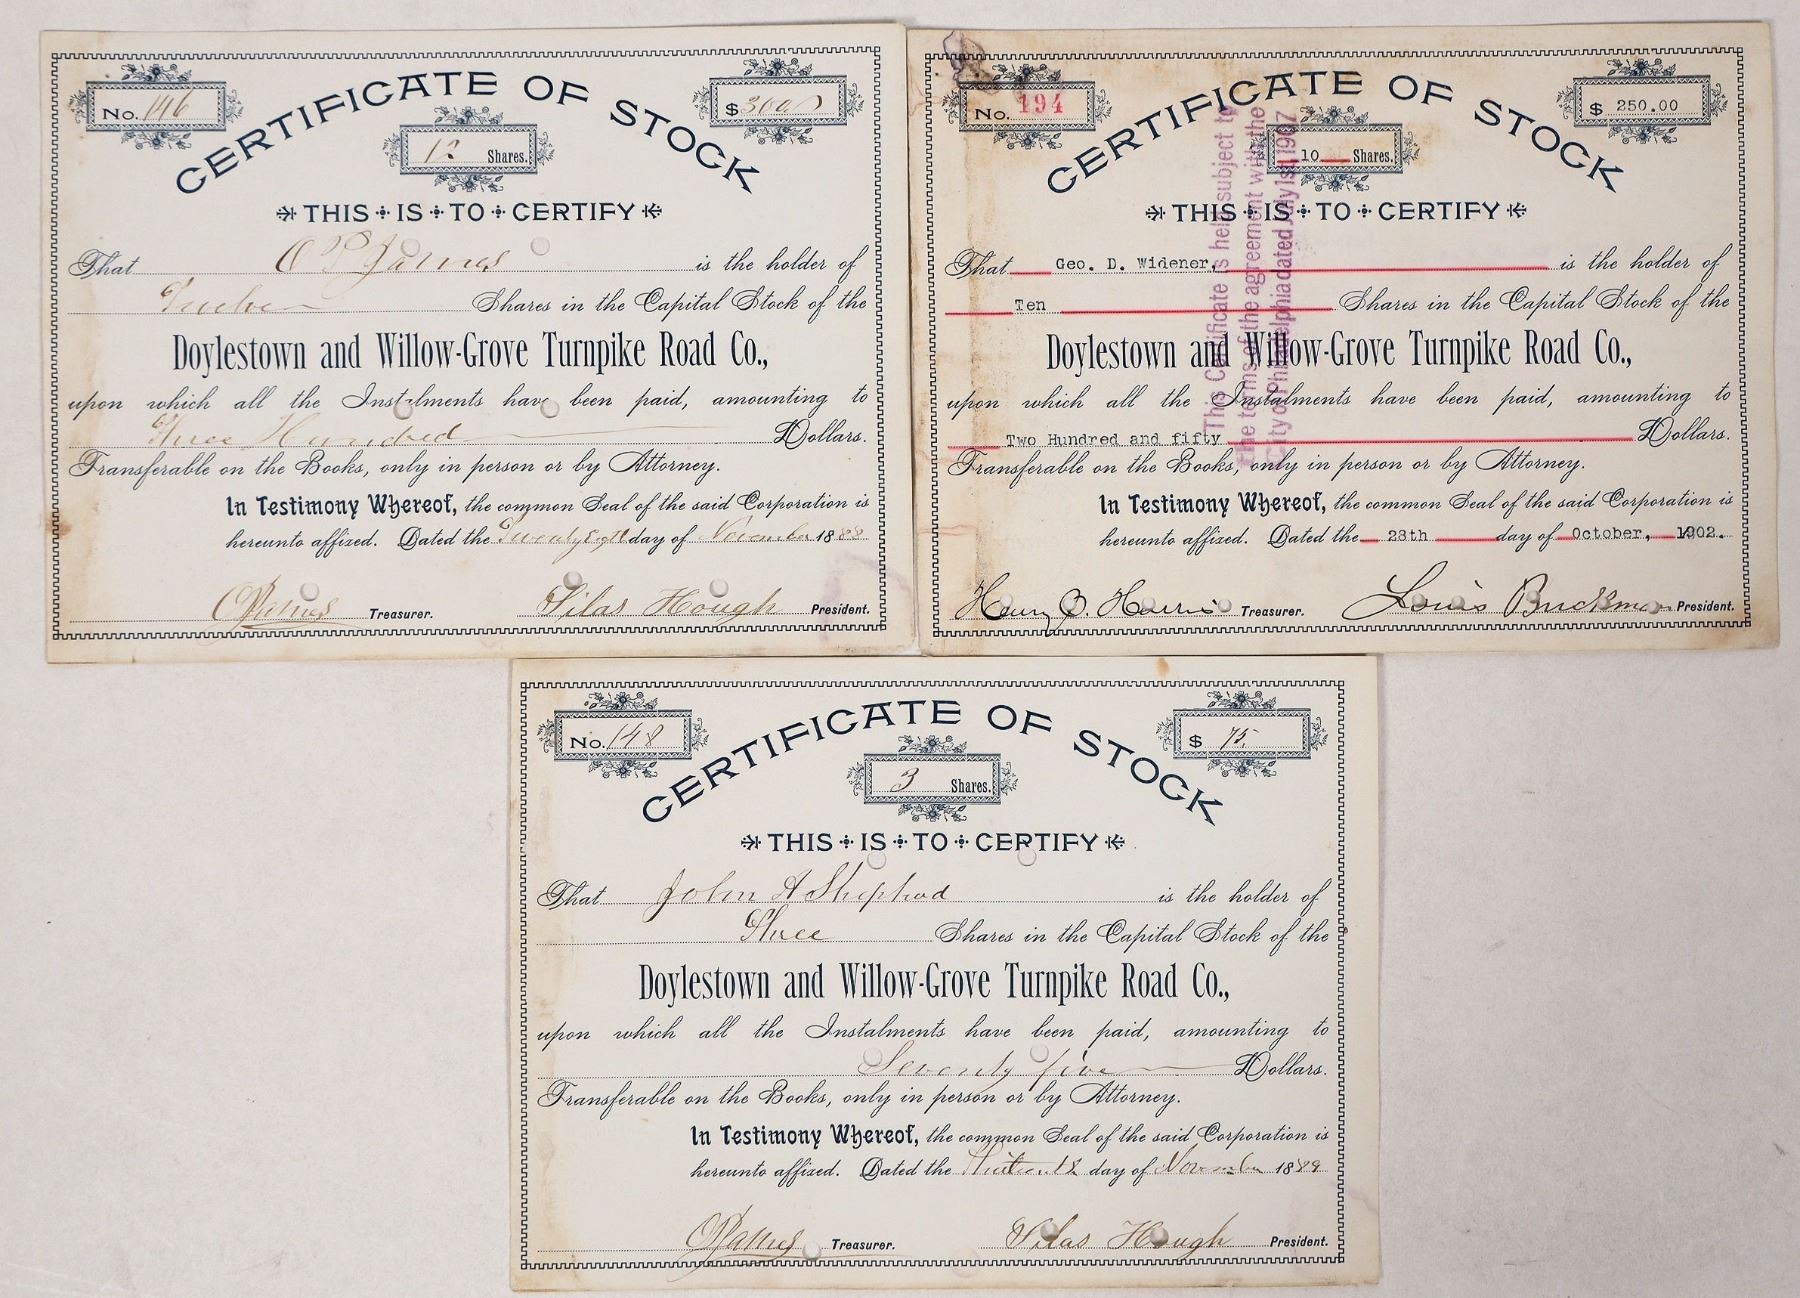 No. 146
CERTIFICATE OF STOCK
$ 300
12 Shares.
THIS IS TO CERTIFY
That O P James is the holder of
Twelve Shares in the Capital Stock of the
Doylestown and Willow-Grove Turnpike Road Co.,
upon which all the Instalments have been paid, amounting to
Three Hundred Dollars.
Transferable on the Books, only in person or by Attorney.
In Testimony Whereof, the common Seal of the said Corporation is
hereunto affixed. Dated the day of November 1888
O P James Treasurer. Silas Hough President.
No. 194
CERTIFICATE OF STOCK
$ 250.00
10 Shares.
THIS IS TO CERTIFY
That Geo. D. Widener, is the holder of
Ten Shares in the Capital Stock of the
Doylestown and Willow-Grove Turnpike Road Co.,
upon which all the Instalments have been paid, amounting to
Two Hundred and fifty Dollars.
Transferable on the Books, only in person or by Attorney.
In Testimony Whereof, the common Seal of the said Corporation is
hereunto affixed. Dated the 28th day of October, 1902.
Henry O. Harris Treasurer. Louis Buckman President.
This Certificate is held subject to
the terms of the agreement with the
City of Philadelphia dated July 1st 1907
No. 148
CERTIFICATE OF STOCK
$ 75.
3 Shares.
THIS IS TO CERTIFY
That John A Shephed is the holder of
Three Shares in the Capital Stock of the
Doylestown and Willow-Grove Turnpike Road Co.,
upon which all the Instalments have been paid, amounting to
Seventy five Dollars.
Transferable on the Books, only in person or by Attorney.
In Testimony Whereof, the common Seal of the said Corporation is
hereunto affixed. Dated the day of November 1889
O P James Treasurer. Silas Hough President.